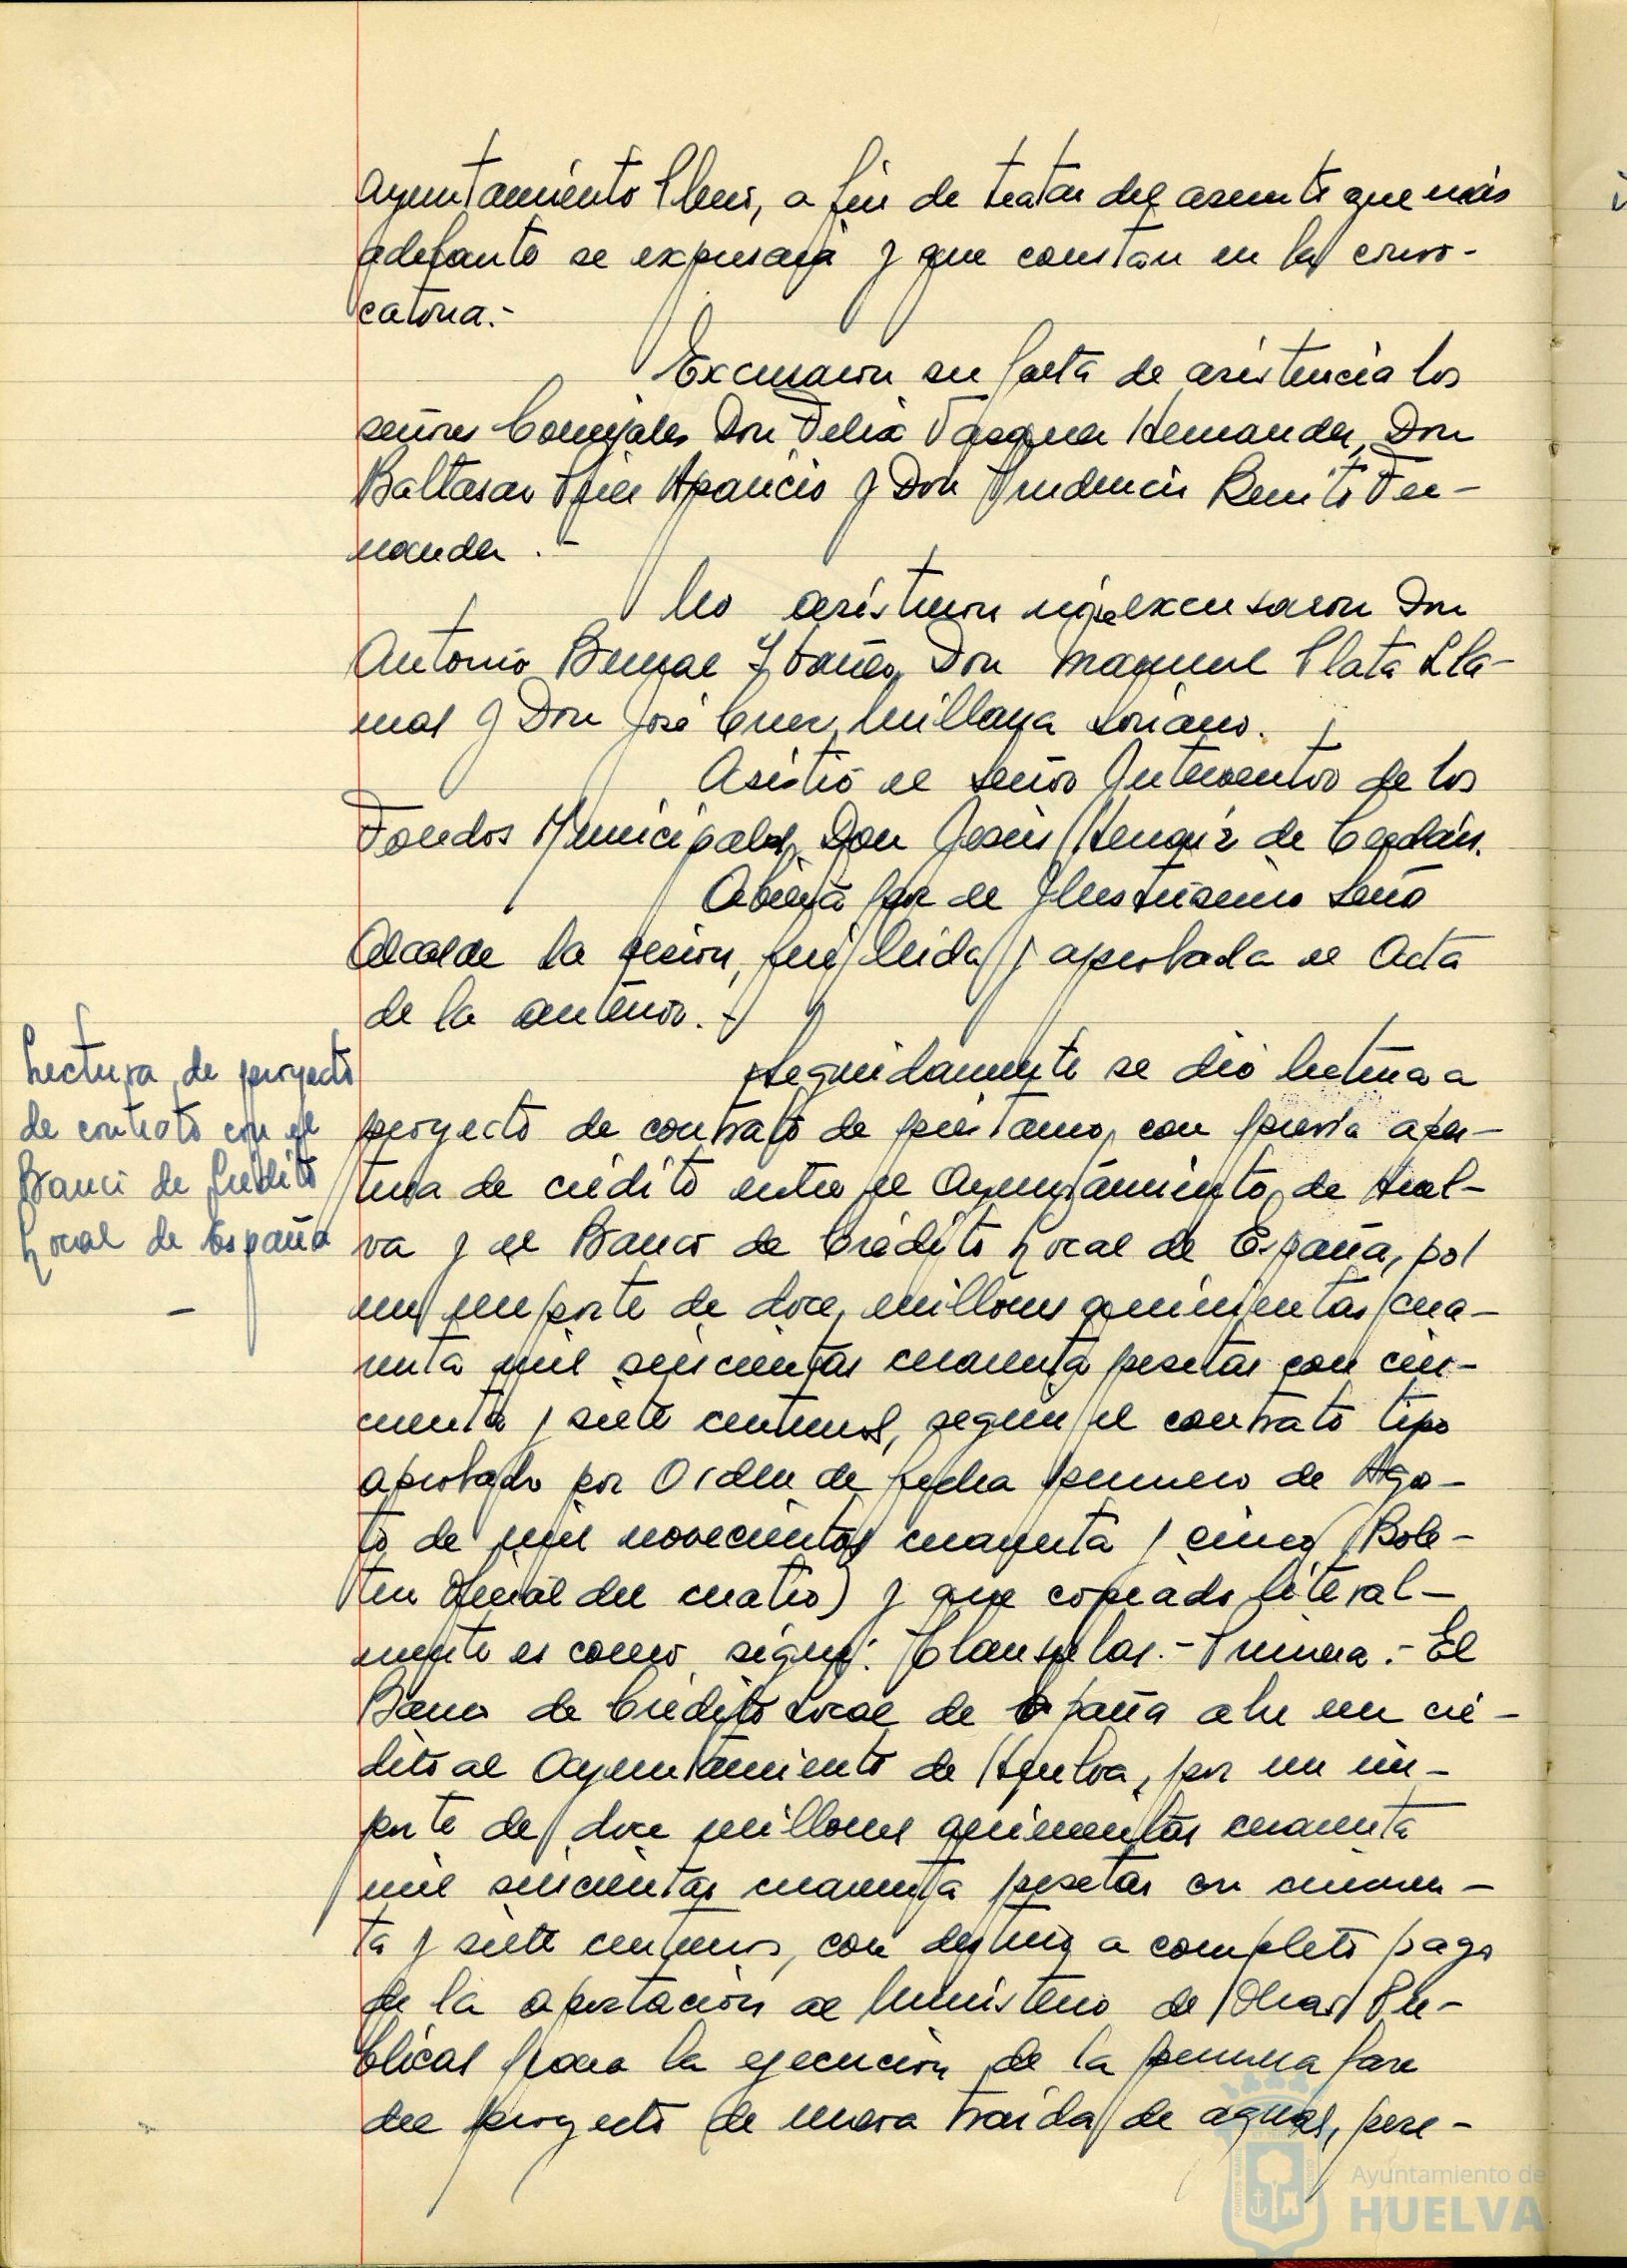 Ayuntamiento Pleno, a fin de tratar del asunto que más
adelante se expresará y que constan en la convo-
catoria.-
Excusaron su falta de asistencia los
señores Concejales Don Felix Vazquez Hernandez, Don
Baltasar Aparicio y Don Prudencio Benito Fer-
nandez .-
No asistieron ni se excusaron Don
Antonio Bernal Ybañez, Don Manuel Plata Lla-
nos y Don José Cruz Millana Soriano.
Asistió el Señor Interventor de los
Fondos Municipales, Don Jesús de Cerdán.
Abierta por el Ilustrisimo Señor
Alcalde la sesion, fué leida y aprobada el Acta
de la anterior.-
Lectura de proyecto
de contrato con el
Banco de Crédito
Local de España
-
Seguidamente se dió lectura a
proyecto de contrato de prestamo, con previa aper-
tura de crédito entre el Ayuntamiento de Huel-
va y el Banco de Crédito Local de España, por
un importe de doce millones quinientas cua-
renta mil seiscientas cuarenta pesetas con cin-
cuenta y siete centimos, según el contrato tipo
aprobado por Orden de fecha primero de Agos-
to de mil novecientos cuarenta y cinco (Bole-
tin Oficial del cuatro) y que copiado literal-
mente es como sigue: Clausulas.- Primera.- El
Banco de Crédito Local de España abre un cré-
dito al Ayuntamiento de Huelva, por un im-
porte de doce millones quinientas cuarenta
mil seiscientas cuarenta pesetas con cincuen-
ta y siete centimos, con destino a completo pago
de la aportacion al Ministerio de Obras Pú-
blicas para la ejecucion de la primera fase
del proyecto de nueva traida de aguas, pese-
Ayuntamiento de
HUELVA